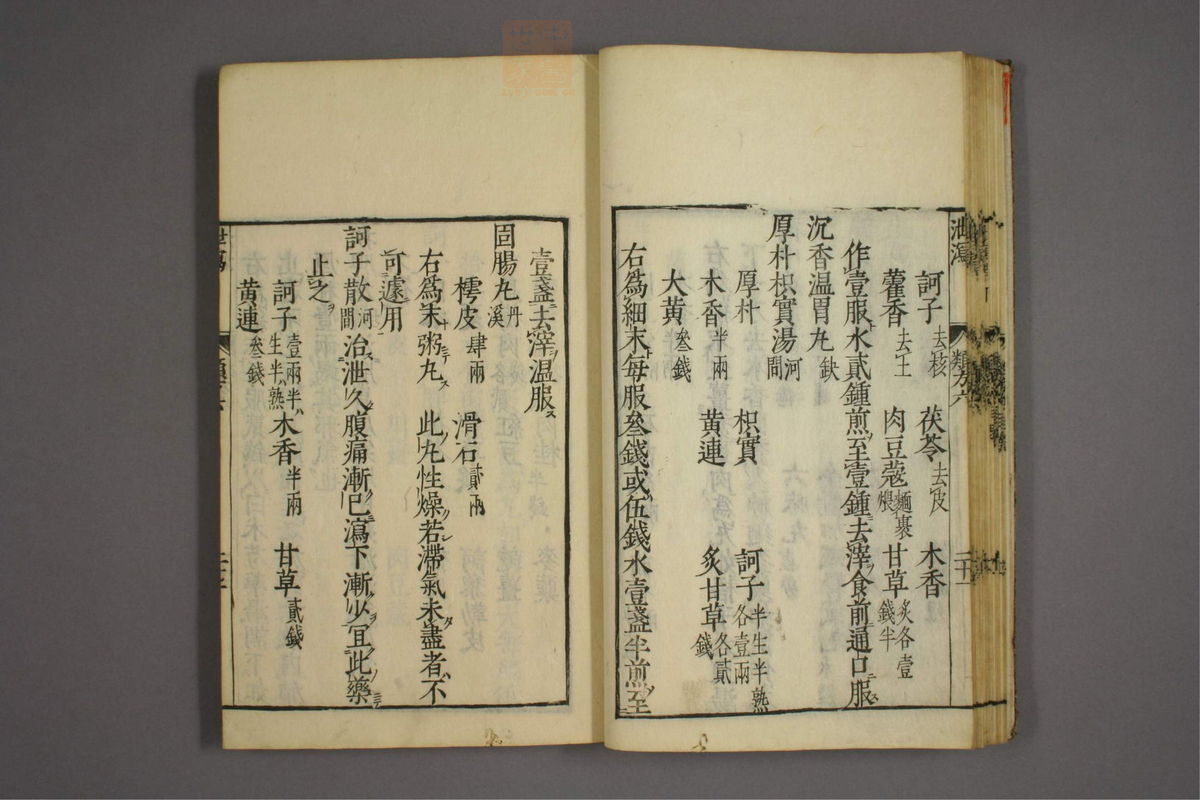 泄瀉
類方六
二十
訶子去核 茯苓去皮 木香
藿香去土 肉豆蔻麵裹煨 甘草炙各壹錢半
作壹服水貳鍾煎至壹鍾去滓食前通口服ス
沉香温胃丸缺
厚朴枳實湯河間
厚朴 枳實 訶子半生半熟各壹兩
木香半兩 黄連 炙甘草各貳錢
大黄叁錢
右爲細末毎服叁錢或伍錢水壹盞半煎至
壹盞去滓温服ス
固腸丸丹溪
樗皮肆兩 滑石貳兩
右爲末粥丸 此丸性燥若滯氣未盡者不
可遽用
訶子散河間 治泄久腹痛漸已瀉下漸少宜此藥
止之
訶子壹兩半生半熟 木香半兩 甘草貳錢
黄連叁錢